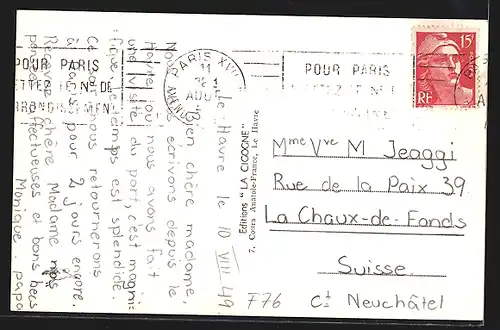 Le Havre le 10 VIII 49.
Bien chère madame,
Nous vous écrivons depuis le
Havre, où nous avons fait
une visite du port, c'est magni-
fique le temps est splendide.
Ce soir nous retournerons
à Paris pour 2 jours encore.
Recevez chère Madame nos
pensées affectueuses et bons becs
Monique. papa
Editions "LA CIGOGNE"
7, Cours Anatole-France, Le Havre
PARIS XVII
11
AOU
POUR PARIS
METTEZ LE N° DE
ARRONDISSEMENT
POUR PARIS
15F
RF
Mme Vve M Jeaggi
Rue de la Paix 39
La Chaux-de-Fonds
Suisse.
F76 Ct Neuchâtel